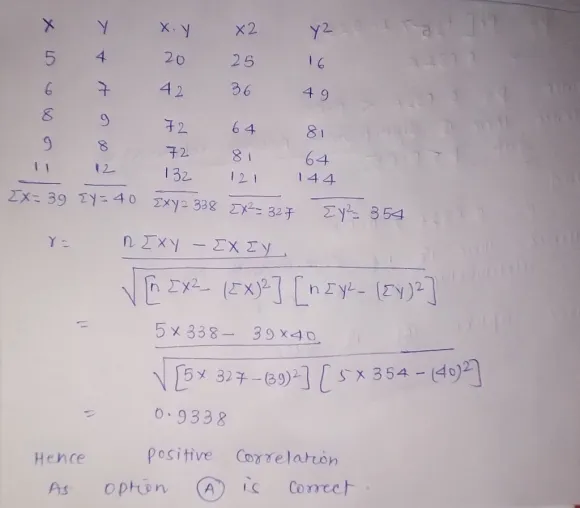 X Y X.Y X2 Y2
5 4 20 25 16
6 7 42 36 49
8 9 72 64 81
9 8 72 81 64
11 12 132 121 144
ΣX=39 ΣY=40 ΣXY=338 ΣX²=327 ΣY²=354
r= n ΣXY - ΣX ΣY
√[n ΣX² - (ΣX)²] [n ΣY² - (ΣY)²]
= 5×338 - 39×40
√[5× 327-(39)²] [5×354-(40)²]
= 0.9338
Hence positive correlation
As option (A) is correct.